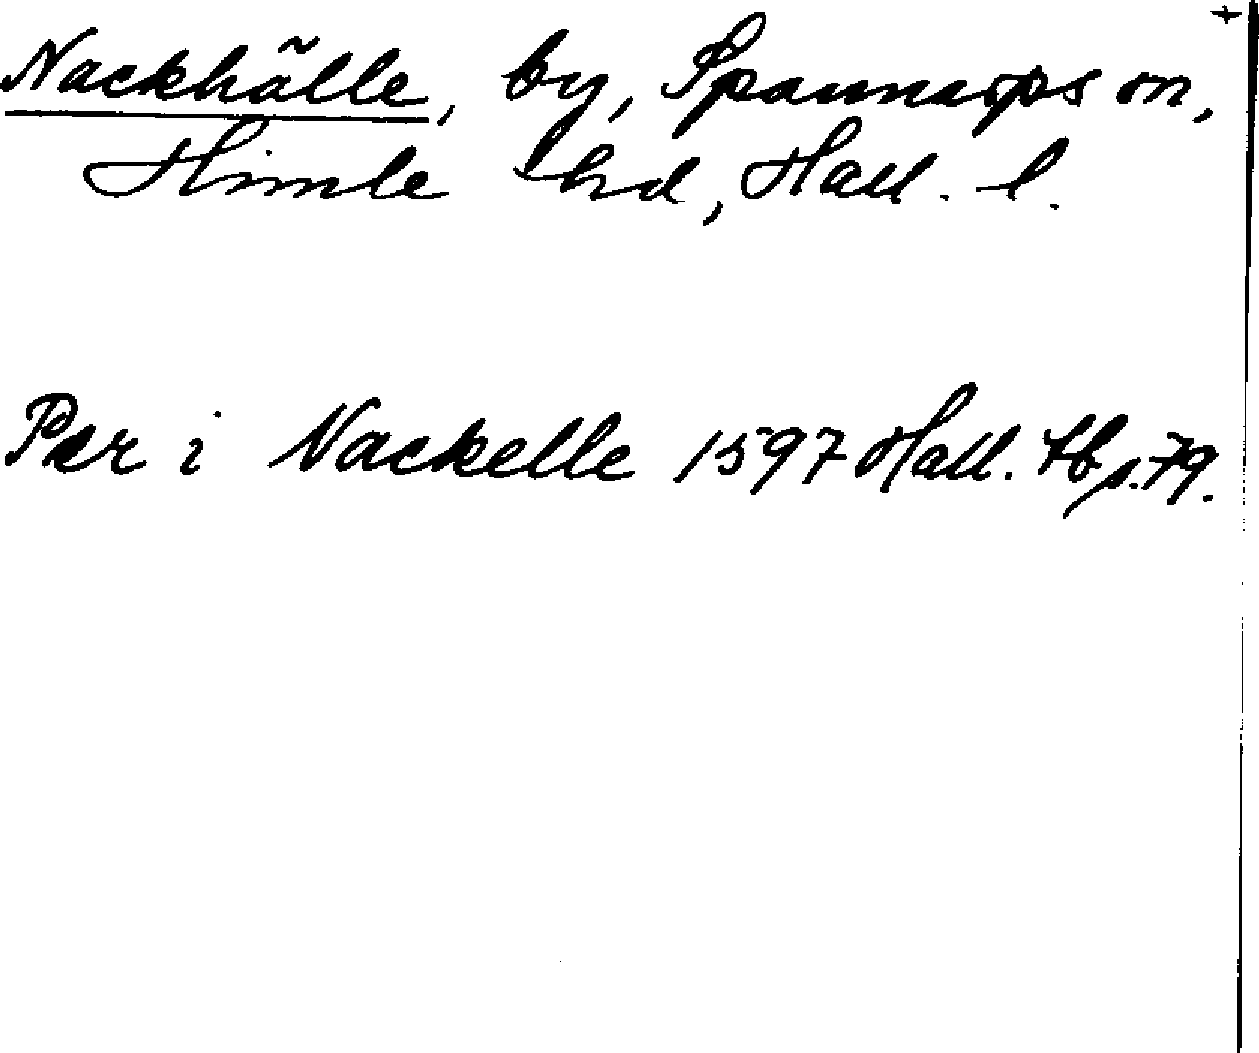 +
Nackhälle, by, Spannarps sn,
Himle hd, Hall. l.
Per i Nackelle 1597 Hall. tb s. 79.